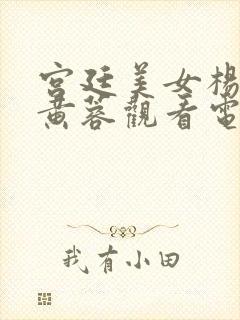 宫廷美女楊
黄蓉觀看電
我有小田